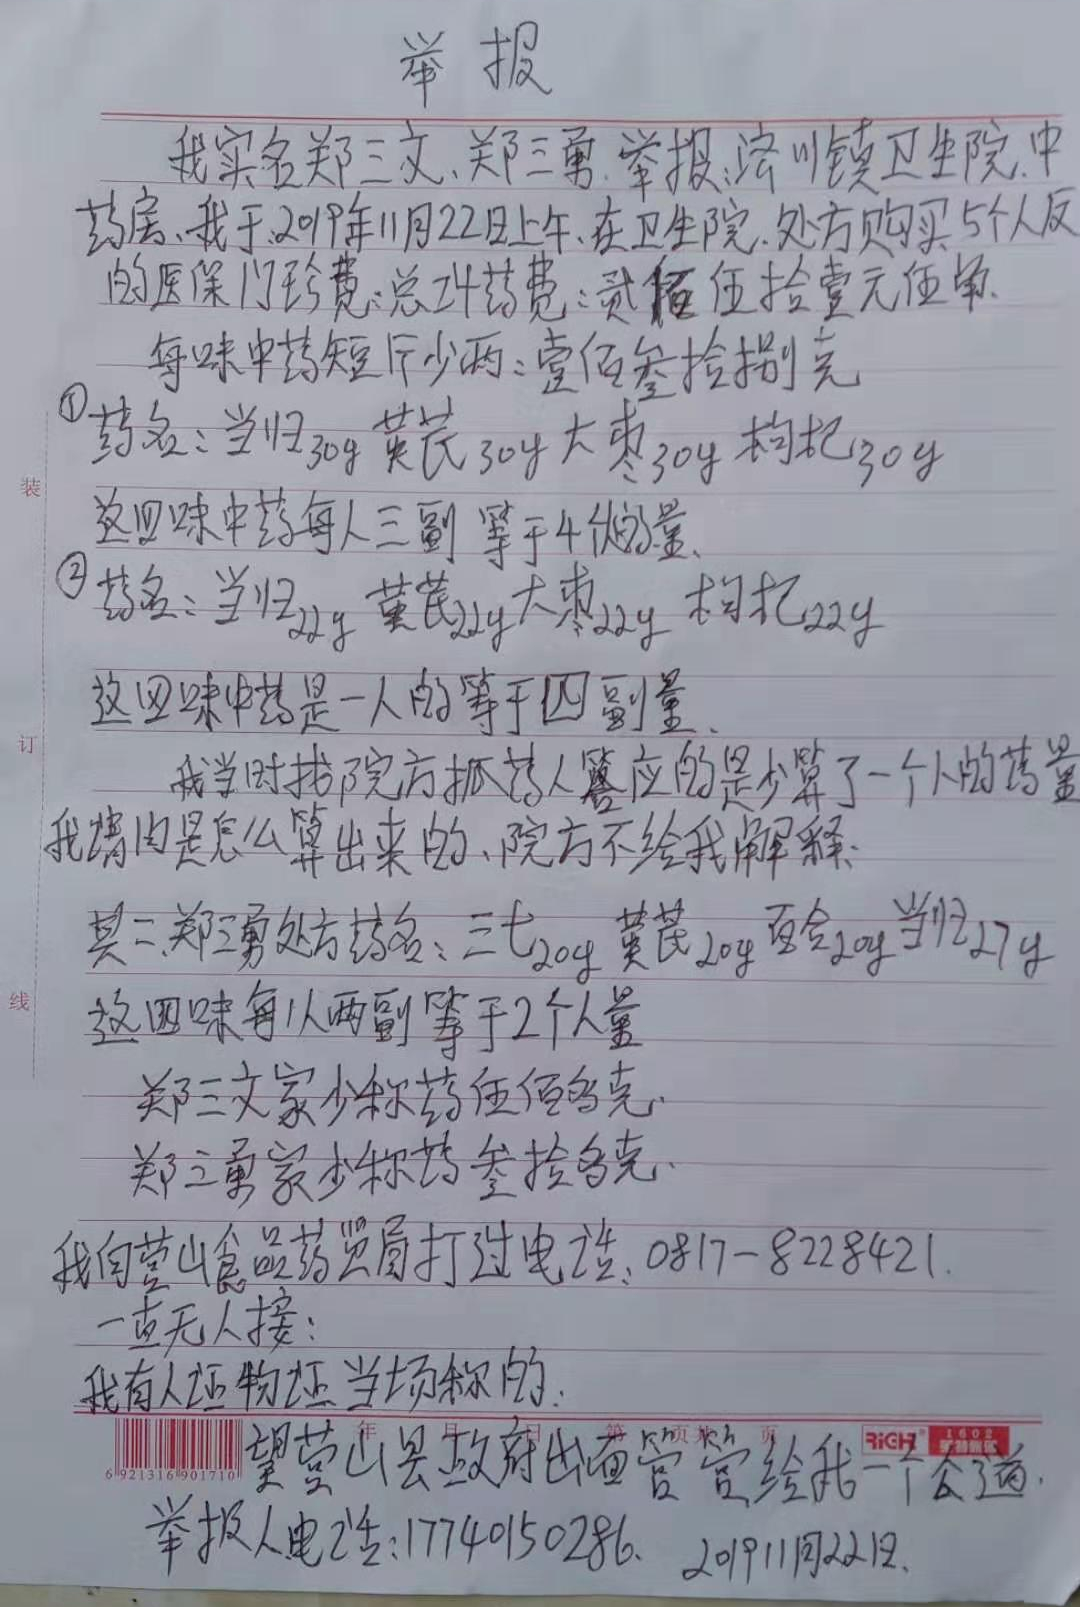 举报
我实名郑三文、郑三勇.举报:济川镇卫生院.中
药房、我于:2019年11月22日上午、在卫生院.处方购买5个人反
的医保门珍费:总计药费:贰佰伍拾壹元伍角.
每味中药短斤少两:壹佰叁拾捌克
①药名:当归30g 黄芪30g 大枣30g 枸杞30g
这四味中药每人三副 等于4个人的量、
②药名:当归22g 黄芪22g 大枣22g 枸杞22g
这四味中药是一人的等于四副量、
我当时找院方抓药人答应的是少算了一个人的药量
我请问是怎么算出来的、院方不给我解释:
其二.郑三勇处方药名:三七20g 黄芪20g 百合20g 当归27g
这四味每人两副等于2个人量
郑三文家少称药伍佰多克.
郑三勇家少称药叁拾多克.
我向营山食品药监局打过电话:0817-8228421.
一直无人接:
我有人证物证当场称的.
年 月 日 第 页 共 页
RiCH 1602
6 921316 901710
望营山县政府出面管管给我一个公道.
举报人电话:17740150286. 2019 11月22日.
装
订
线